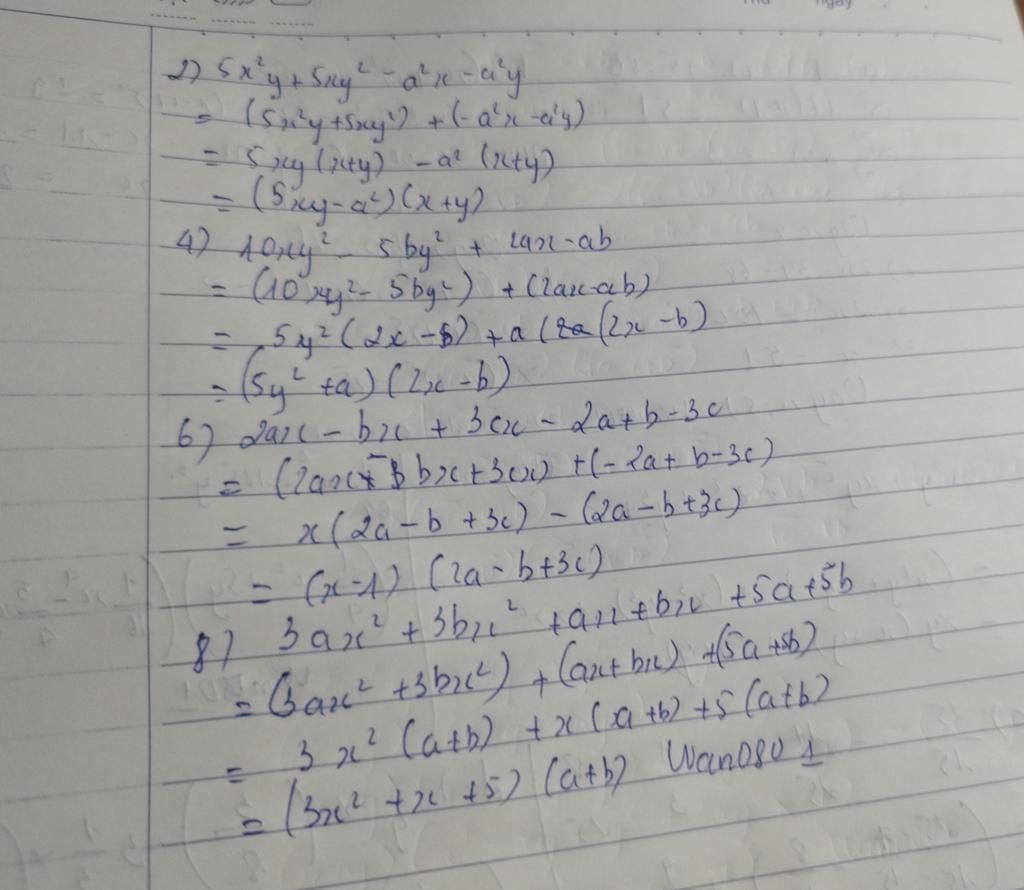 Thứ
ngày
2) 5x²y + 5xy² - a²x - a²y
= (5x²y + 5xy²) + (- a²x - a²y)
= 5xy (x+y) - a² (x+y)
= (5xy - a²) (x+y)
4) 10xy² - 5by² + 2ax - ab
= (10xy² - 5by²) + (2ax - ab)
= 5y² (2x - b) + a (2x - b)
= (5y² + a) (2x - b)
6) 2ax - bx + 3cx - 2a + b - 3c
= (2ax - bx + 3cx) + (- 2a + b - 3c)
= x(2a - b + 3c) - (2a - b + 3c)
= (x - 1) (2a - b + 3c)
8) 3ax² + 3bx² + ax + bx + 5a + 5b
= (3ax² + 3bx²) + (ax + bx) + (5a + 5b)
= 3x² (a+b) + x (a+b) + 5 (a+b)
= (3x² + x + 5) (a+b) Wan0801